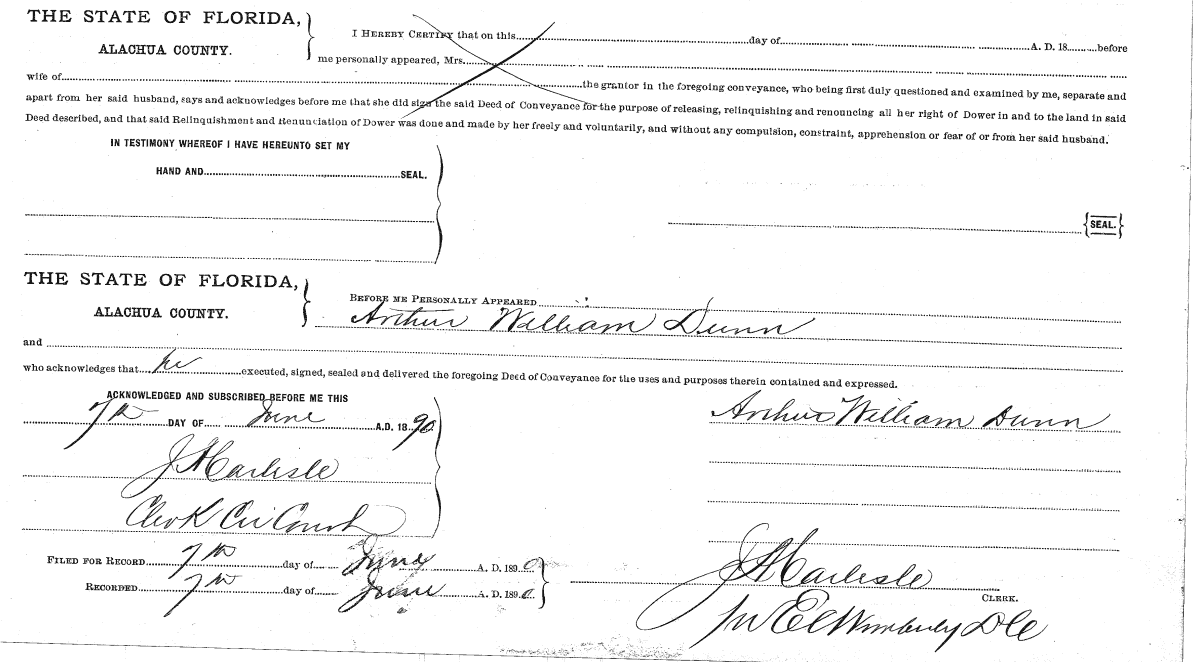 THE STATE OF FLORIDA,
ALACHUA COUNTY.
I HEREBY CERTIFY that on this day of A. D. 18 before
me personally appeared, Mrs.
wife of the grantor in the foregoing conveyance, who being first duly questioned and examined by me, separate and
apart from her said husband, says and acknowledges before me that she did sign the said Deed of Conveyance for the purpose of releasing, relinquishing and renouncing all her right of Dower in and to the land in said
Deed described, and that said Relinquishment and Renunciation of Dower was done and made by her freely and voluntarily, and without any compulsion, constraint, apprehension or fear of or from her said husband.
IN TESTIMONY WHEREOF I HAVE HEREUNTO SET MY
HAND AND SEAL.
SEAL.
THE STATE OF FLORIDA,
ALACHUA COUNTY.
BEFORE ME PERSONALLY APPEARED
Arthur William Dunn
and
who acknowledges that he executed, signed, sealed and delivered the foregoing Deed of Conveyance for the uses and purposes therein contained and expressed.
ACKNOWLEDGED AND SUBSCRIBED BEFORE ME THIS
7th DAY OF June A.D. 18 90
Arthur William Dunn
J A Carlisle
Clerk Cir Court
FILED FOR RECORD 7th day of June A. D. 1890
RECORDED 7th day of June A. D. 1890
J A Carlisle
CLERK.
E C Wimberly D C